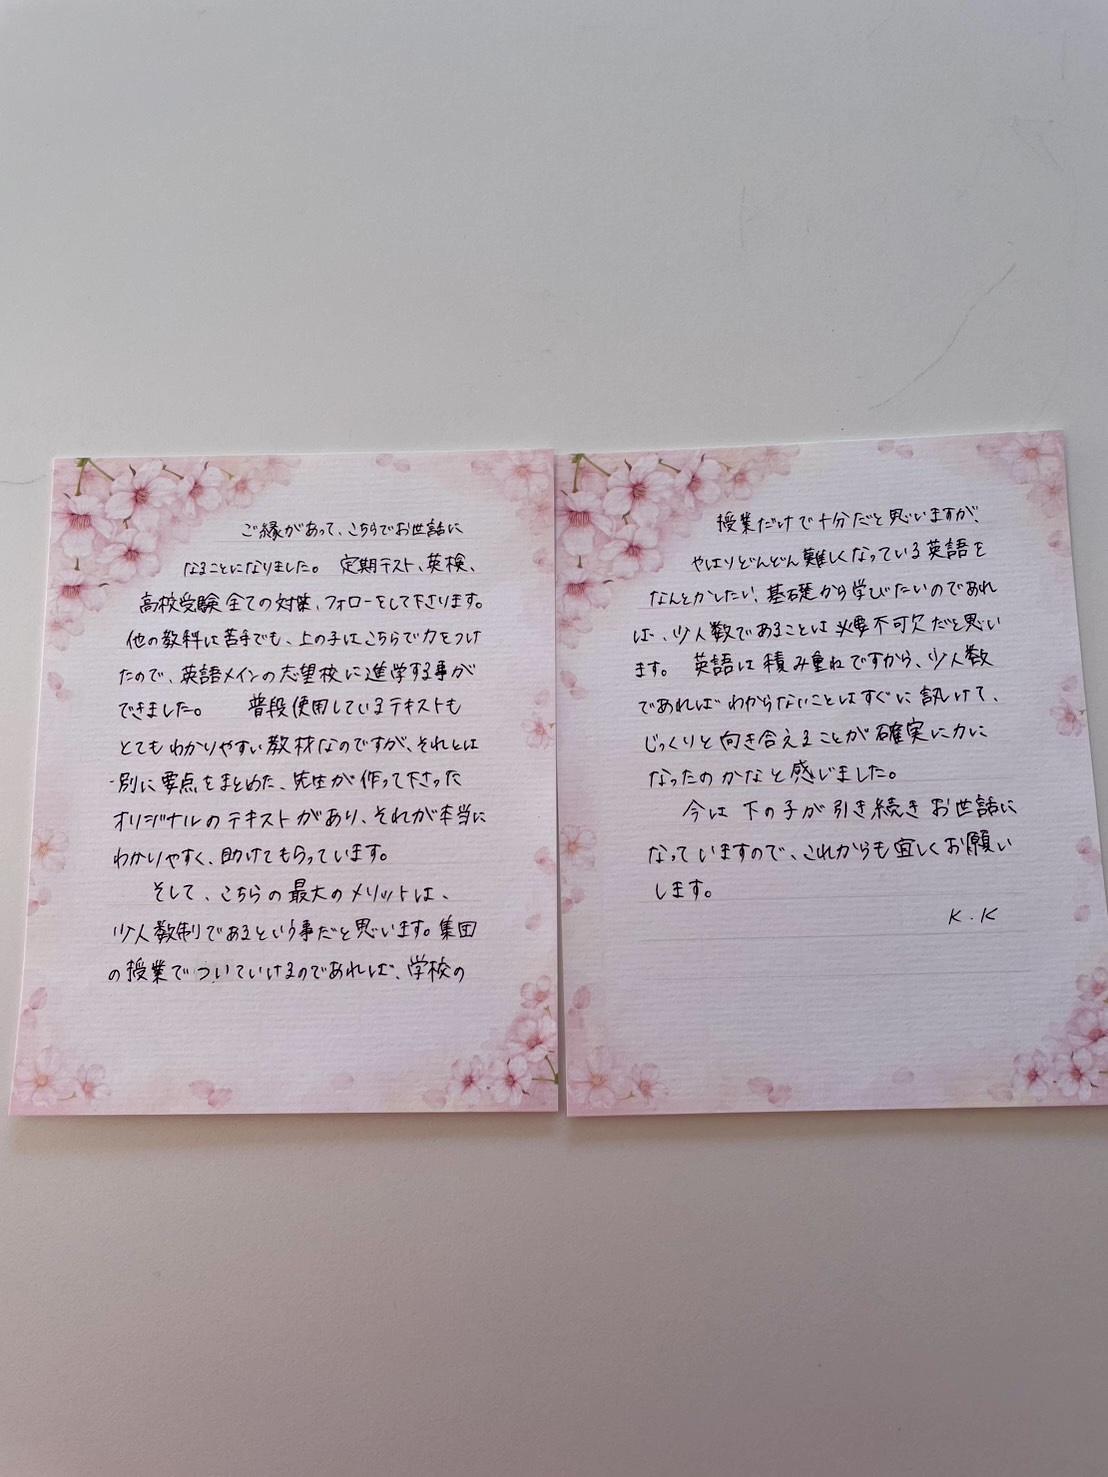 ご縁があって、こちらでお世話に
なることになりました。 定期テスト、英検、
高校受験全ての対策、フォローをして下さります。
他の教科は苦手でも、上の子はこちらで力をつけ
たので、英語メインの志望校に進学する事が
できました。 普段使用しているテキストも
とてもわかりやすい教材なのですが、それとは
別に要点をまとめた、先生が作って下さった
オリジナルのテキストがあり、それが本当に
わかりやすく、助けてもらっています。
そして、こちらの最大のメリットは、
少人数制であるという事だと思います。集団
の授業でついていけるのであれば、学校の
授業だけで十分だと思いますが、
やはりどんどん難しくなっている英語を
なんとかしたい、基礎から学びたいのであれ
ば、少人数であることは必要不可欠だと思い
ます。 英語は積み重ねですから、少人数
であればわからないことはすぐに訊けて、
じっくりと向き合えることが確実に力に
なったのかなと感じました。
今は下の子が引き続きお世話に
なっていますので、これからも宜しくお願い
します。
K.K